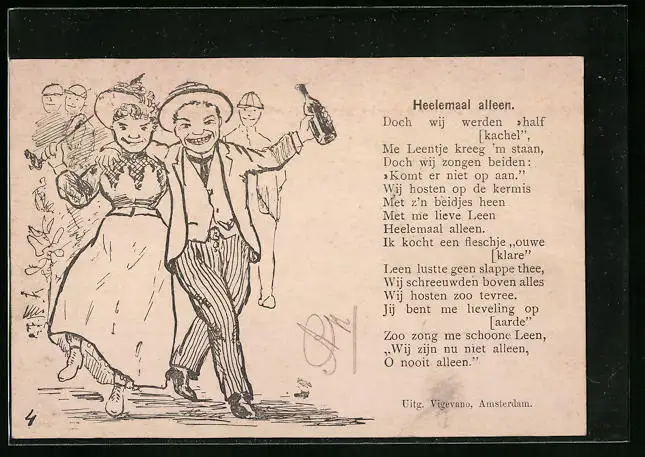 Heelemaal alleen.
Doch wij werden »half
[kachel”,
Me Leentje kreeg 'm staan,
Doch wij zongen beiden:
»Komt er niet op aan.”
Wij hosten op de kermis
Met z'n beidjes heen
Met me lieve Leen
Heelemaal alleen.
Ik kocht een fleschje „ouwe
[klare”
Leen lustte geen slappe thee,
Wij schreeuwden boven alles
Wij hosten zoo tevree.
Jij bent me lieveling op
[aarde”
Zoo zong me schoone Leen,
„Wij zijn nu niet alleen,
O nooit alleen.”
Uitg. Vigevano, Amsterdam.
4